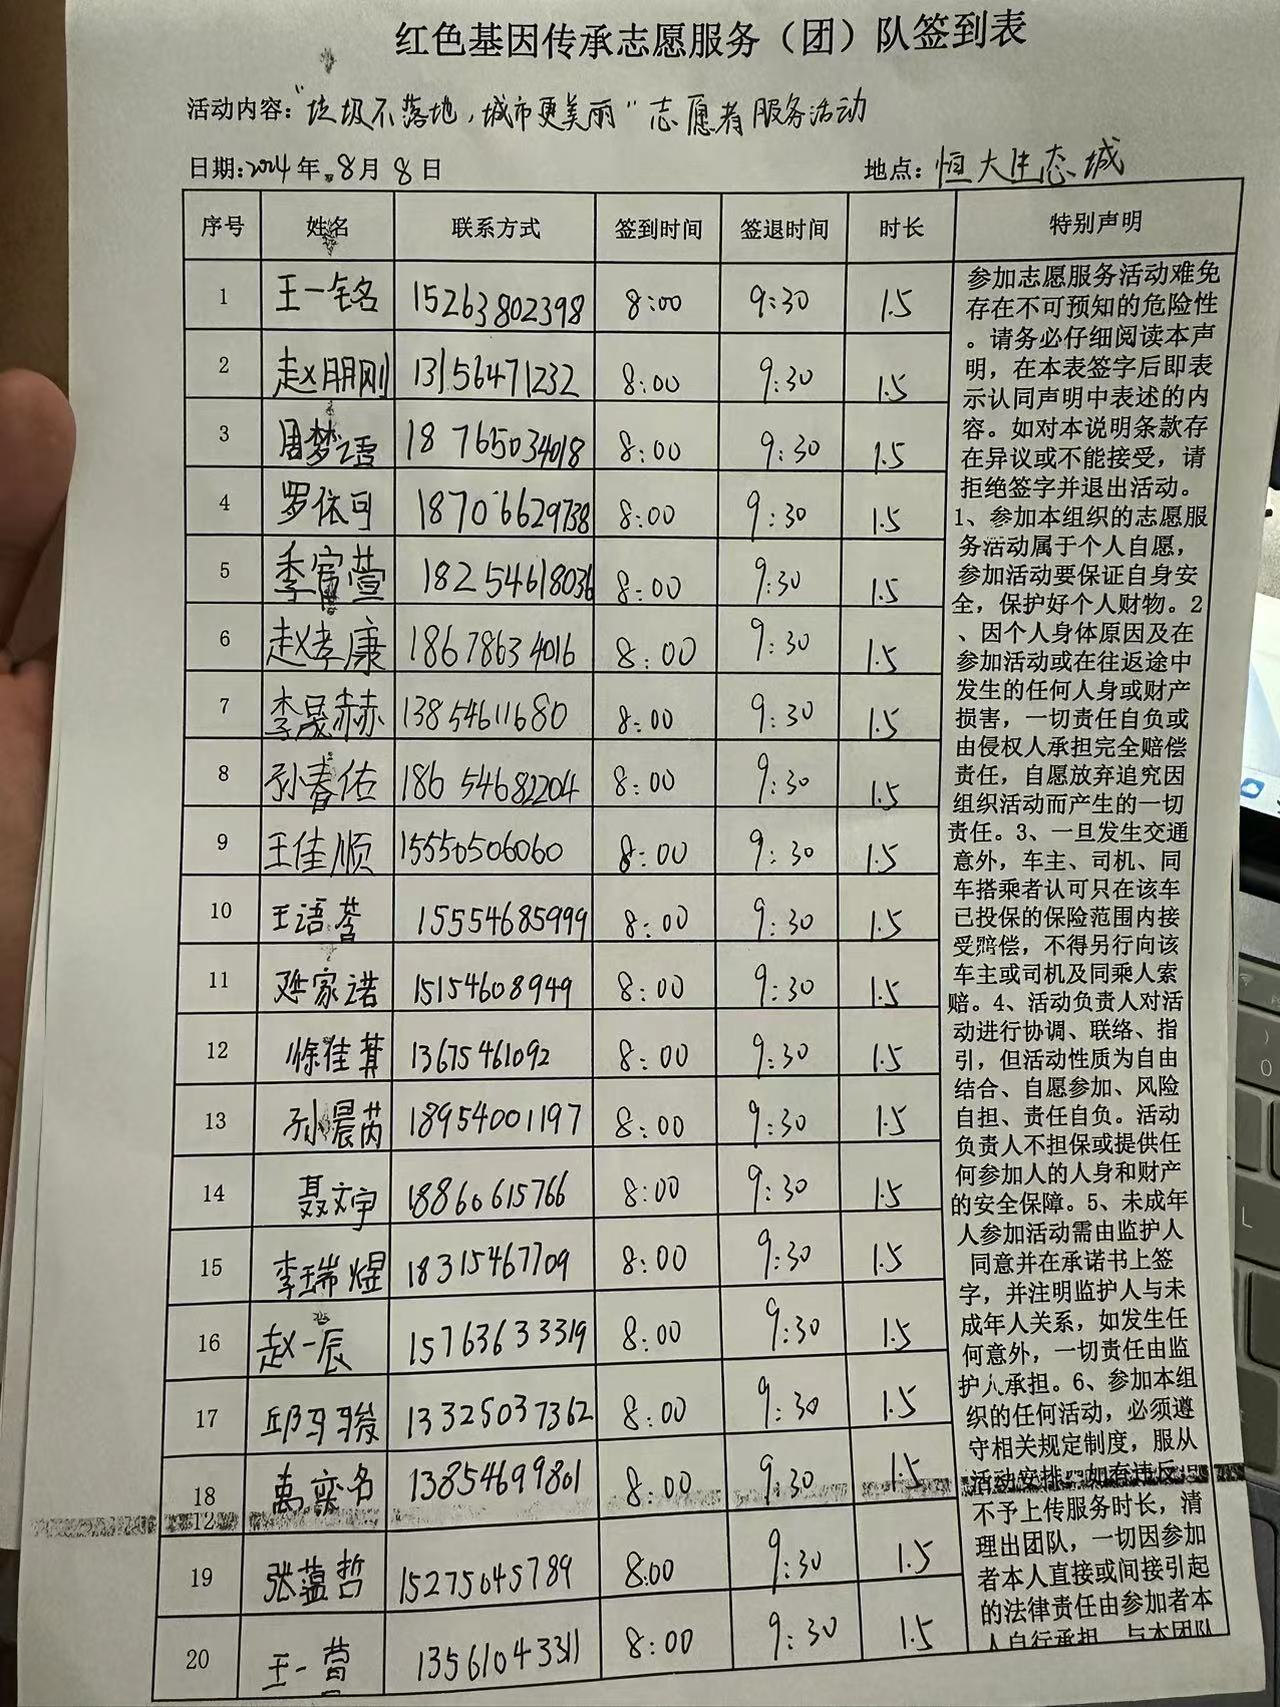 红色基因传承志愿服务（团）队签到表
活动内容：“垃圾不落地，城市更美丽”志愿者服务活动
日期：2024年 8月 8日 地点：恒大生态城
序号 姓名 联系方式 签到时间 签退时间 时长 特别声明
1 王一铭 15263802398 8:00 9:30 1.5
2 赵朋刚 13156471232 8:00 9:30 1.5
3 周梦 18765034018 8:00 9:30 1.5
4 罗依可 18706629738 8:00 9:30 1.5
5 季萱 18254618036 8:00 9:30 1.5
6 赵孝康 18678634016 8:00 9:30 1.5
7 李晟赫 13854611680 8:00 9:30 1.5
8 孙春佑 18654682204 8:00 9:30 1.5
9 王佳顺 15550506060 8:00 9:30 1.5
10 王语 15554685999 8:00 9:30 1.5
11 家诺 15154608949 8:00 9:30 1.5
12 徐佳 13675461092 8:00 9:30 1.5
13 孙晨芮 18954001197 8:00 9:30 1.5
14 聂文宇 18860615766 8:00 9:30 1.5
15 李瑞煜 18315467709 8:00 9:30 1.5
16 赵一辰 15763633319 8:00 9:30 1.5
17 邱 13325037362 8:00 9:30 1.5
18 奕名 13854699801 8:00 9:30 1.5
12
19 张蕴哲 15275045789 8:00 9:30 1.5
20 王一 13561043311 8:00 9:30 1.5
参加志愿服务活动难免
存在不可预知的危险性
。请务必仔细阅读本声
明，在本表签字后即表
示认同声明中表述的内
容。如对本说明条款存
在异议或不能接受，请
拒绝签字并退出活动。
1、参加本组织的志愿服
务活动属于个人自愿，
参加活动要保证自身安
全，保护好个人财物。2
、因个人身体原因及在
参加活动或在往返途中
发生的任何人身或财产
损害，一切责任自负或
由侵权人承担完全赔偿
责任，自愿放弃追究因
组织活动而产生的一切
责任。3、一旦发生交通
意外，车主、司机、同
车搭乘者认可只在该车
已投保的保险范围内接
受赔偿，不得另行向该
车主或司机及同乘人索
赔。4、活动负责人对活
动进行协调、联络、指
引，但活动性质为自由
结合、自愿参加、风险
自担、责任自负。活动
负责人不担保或提供任
何参加人的人身和财产
的安全保障。5、未成年
人参加活动需由监护人
同意并在承诺书上签
字，并注明监护人与未
成年人关系，如发生任
何意外，一切责任由监
护人承担。6、参加本组
织的任何活动，必须遵
守相关规定制度，服从
活动安排。如有违反，
不予上传服务时长，清
理出团队，一切因参加
者本人直接或间接引起
的法律责任由参加者本
人自行承担，与本团队